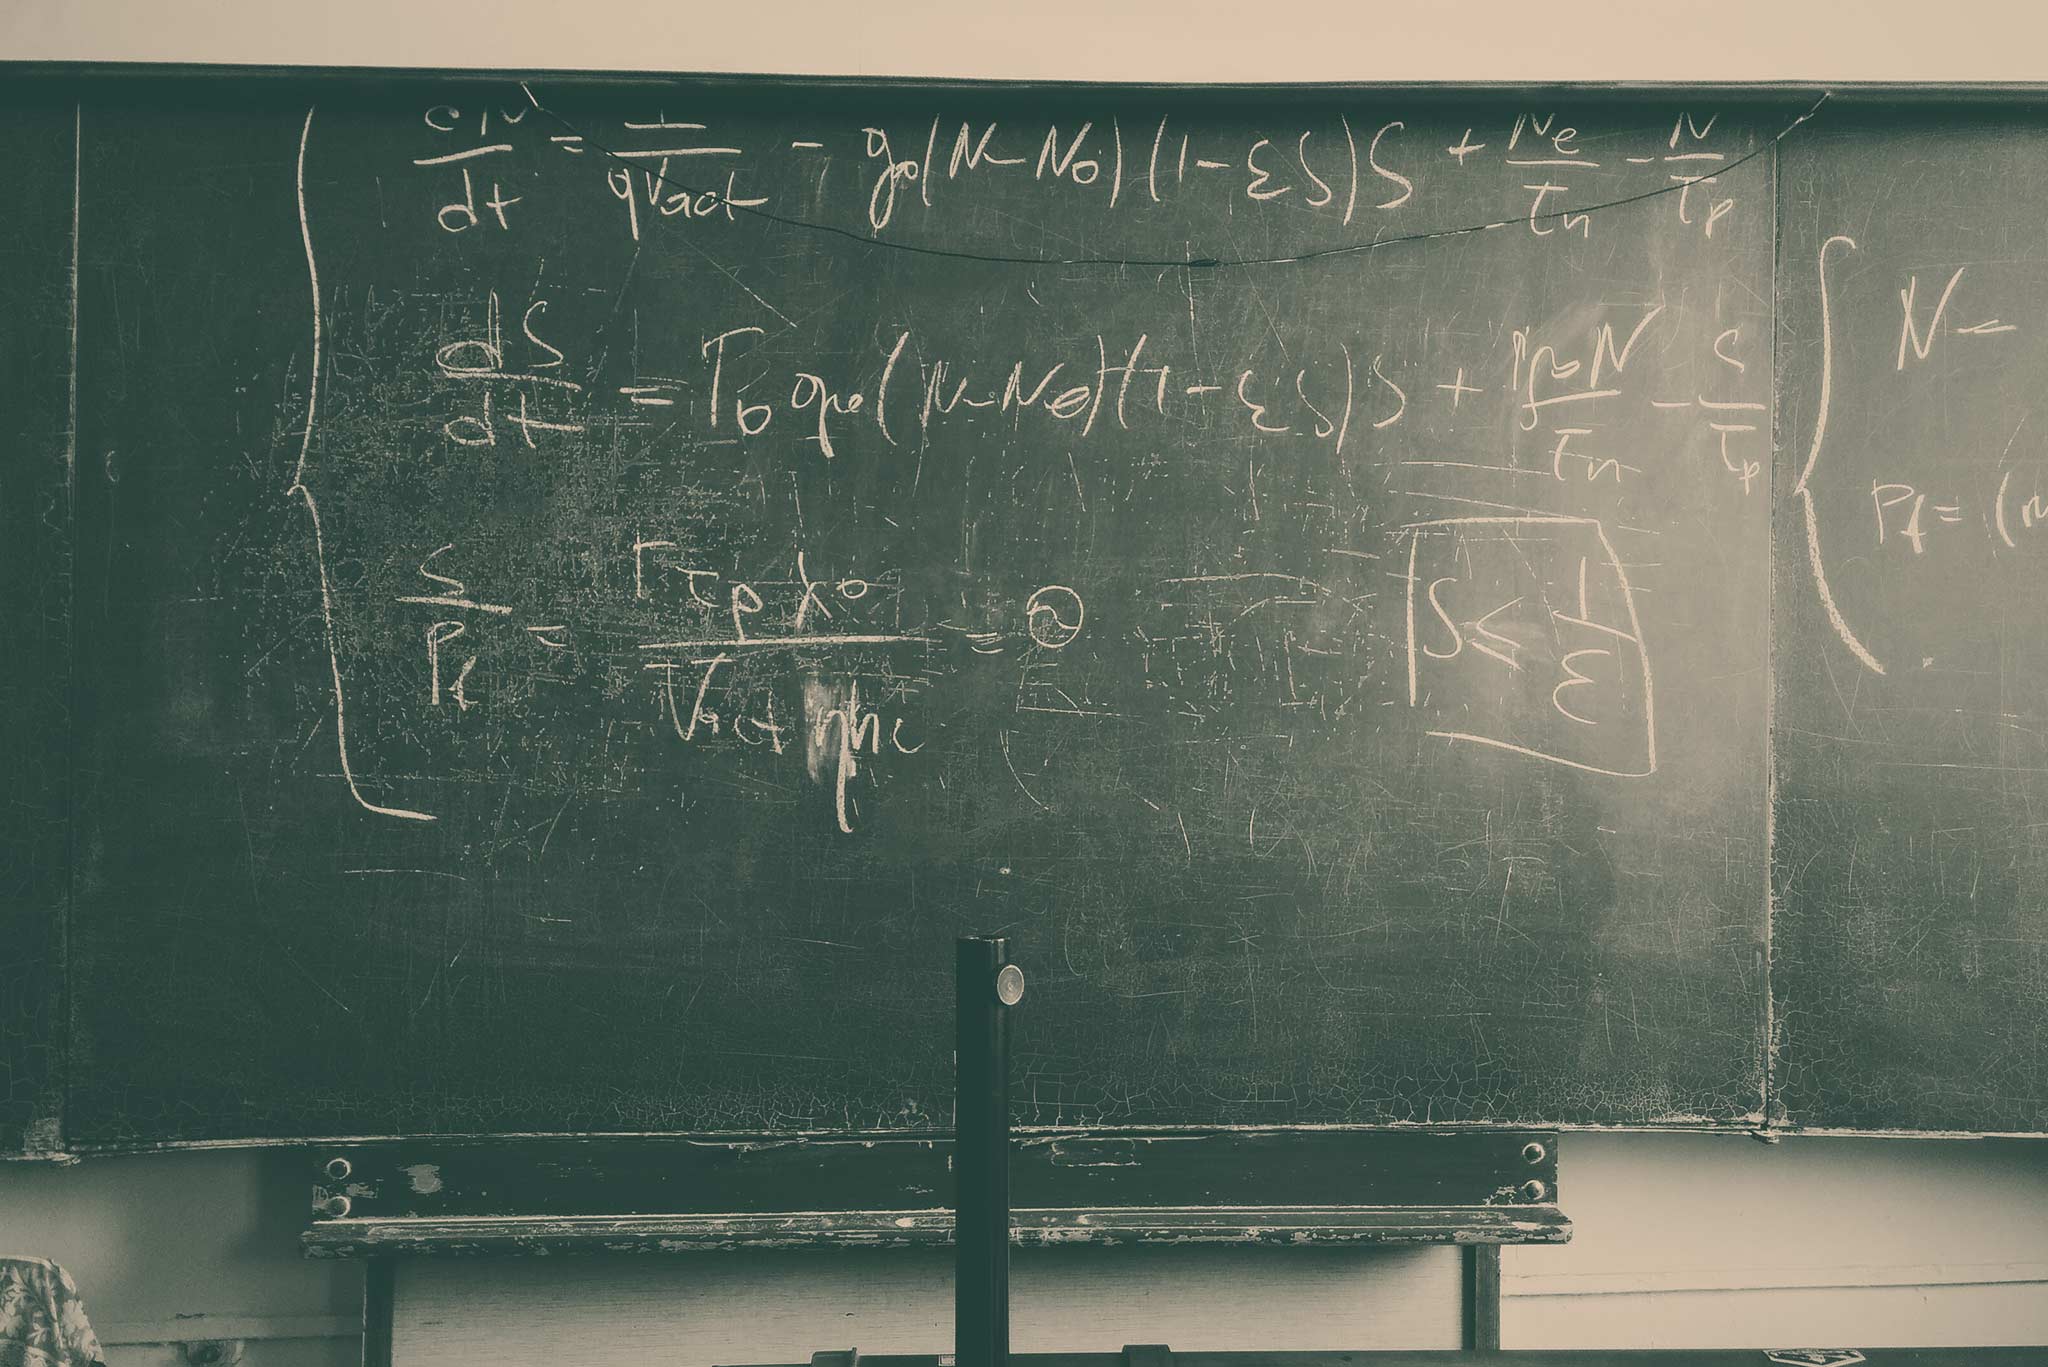 dN/dt = I/qVact - go(N-No)(1-εS)S + Ne/τn - N/τp
dS/dt = Γo go(N-No)(1-εS)S + N/τn - S/τp
S/Pf = Γτpλo/Vact ηhc =
S ≤ 1/ε
N -
Pf = (m